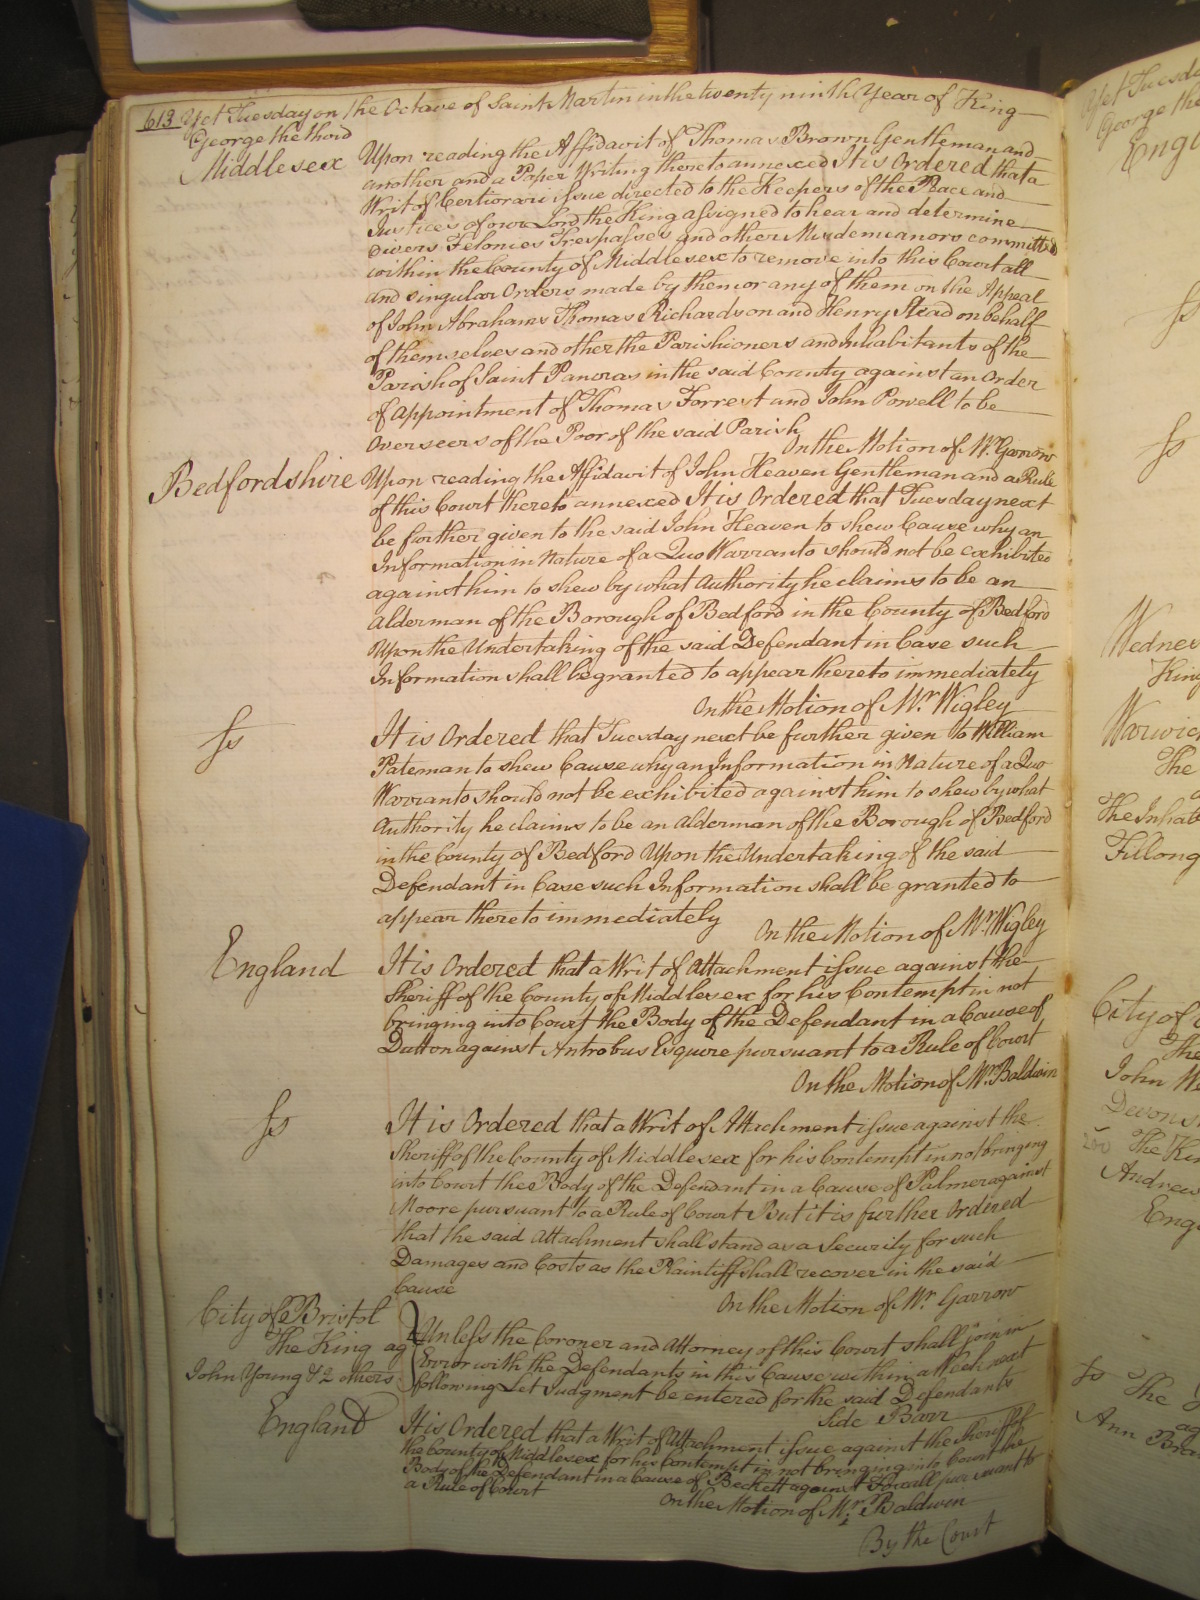 613 Yet Tuesday on the Octave of Saint Martin in the twenty ninth Year of King
George the third
Middlesex Upon reading the Affidavit of Thomas Brown Gentleman and
another and a Paper Writing thereto annexed It is Ordered that a
Writ of Certiorari issue directed to the Keepers of the Peace and
Justices of our Lord the King assigned to hear and determine
divers Felonies Trespasses and other Misdemeanors committed
within the County of Middlesex to remove into this Court all
and singular Orders made by them or any of them on the Appeal
of John Abrahams Thomas Richardson and Henry Stead on behalf
of themselves and other the Parishioners and Inhabitants of the
Parish of Saint Pancras in the said County against an Order
of appointment of Thomas Forrest and John Powell to be
Overseers of the Poor of the said Parish
On the Motion of Mr. Garrow
Bedfordshire Upon reading the Affidavit of John Heaven Gentleman and a Rule
of this Court thereto annexed It is Ordered that Tuesday next
be further given to the said John Heaven to shew Cause why an
Information in Nature of a Quo Warranto should not be exhibited
against him to shew by what Authority he claims to be an
Alderman of the Borough of Bedford in the County of Bedford
Upon the Undertaking of the said Defendant in Case such
Information shall be granted to appear thereto immediately
On the Motion of Mr. Wigley
Ss It is Ordered that Tuesday next be further given to William
Pateman to shew Cause why an Information in Nature of a Quo
Warranto should not be exhibited against him to shew by what
Authority he claims to be an Alderman of the Borough of Bedford
in the County of Bedford Upon the Undertaking of the said
Defendant in Case such Information shall be granted to
appear thereto immediately
On the Motion of Mr. Wigley
England It is Ordered that a Writ of Attachment issue against the
Sheriff of the County of Middlesex for his Contempt in not
bringing into Court the Body of the Defendant in a Cause of
Dutton against Antrobus Esquire pursuant to a Rule of Court
On the Motion of Mr. Baldwin
Ss It is Ordered that a Writ of Attachment issue against the
Sheriff of the County of Middlesex for his Contempt in not bringing
into Court the Body of the Defendant in a Cause of Palmer against
Moore pursuant to a Rule of Court But it is further Ordered
that the said Attachment shall stand as a Security for such
Damages and Costs as the Plaintiff shall recover in the said
Cause
On the Motion of Mr. Garrow
City of Bristol
The King ag
John Young & 2 others
Unless the Coroner and Attorney of this Court shall join in
Error with the Defendants in this Cause within a Week next
following Let Judgment be entered for the said Defendants
Side Barr
England It is Ordered that a Writ of Attachment issue against the Sheriff of
the County of Middlesex for his Contempt in not bringing into Court the
Body of the Defendant in a Cause of Beckett against pursuant to
a Rule of Court
On the Motion of Mr. Baldwin
By the Court
Yet Tuesda
George the
Engl
Ss
Ss
Wednes
King
Warwick
The
The Inhab
Fillong
City of
The
John
Devons
The Kin
Andrew
Engl
Ss The
ag
Ann Bra